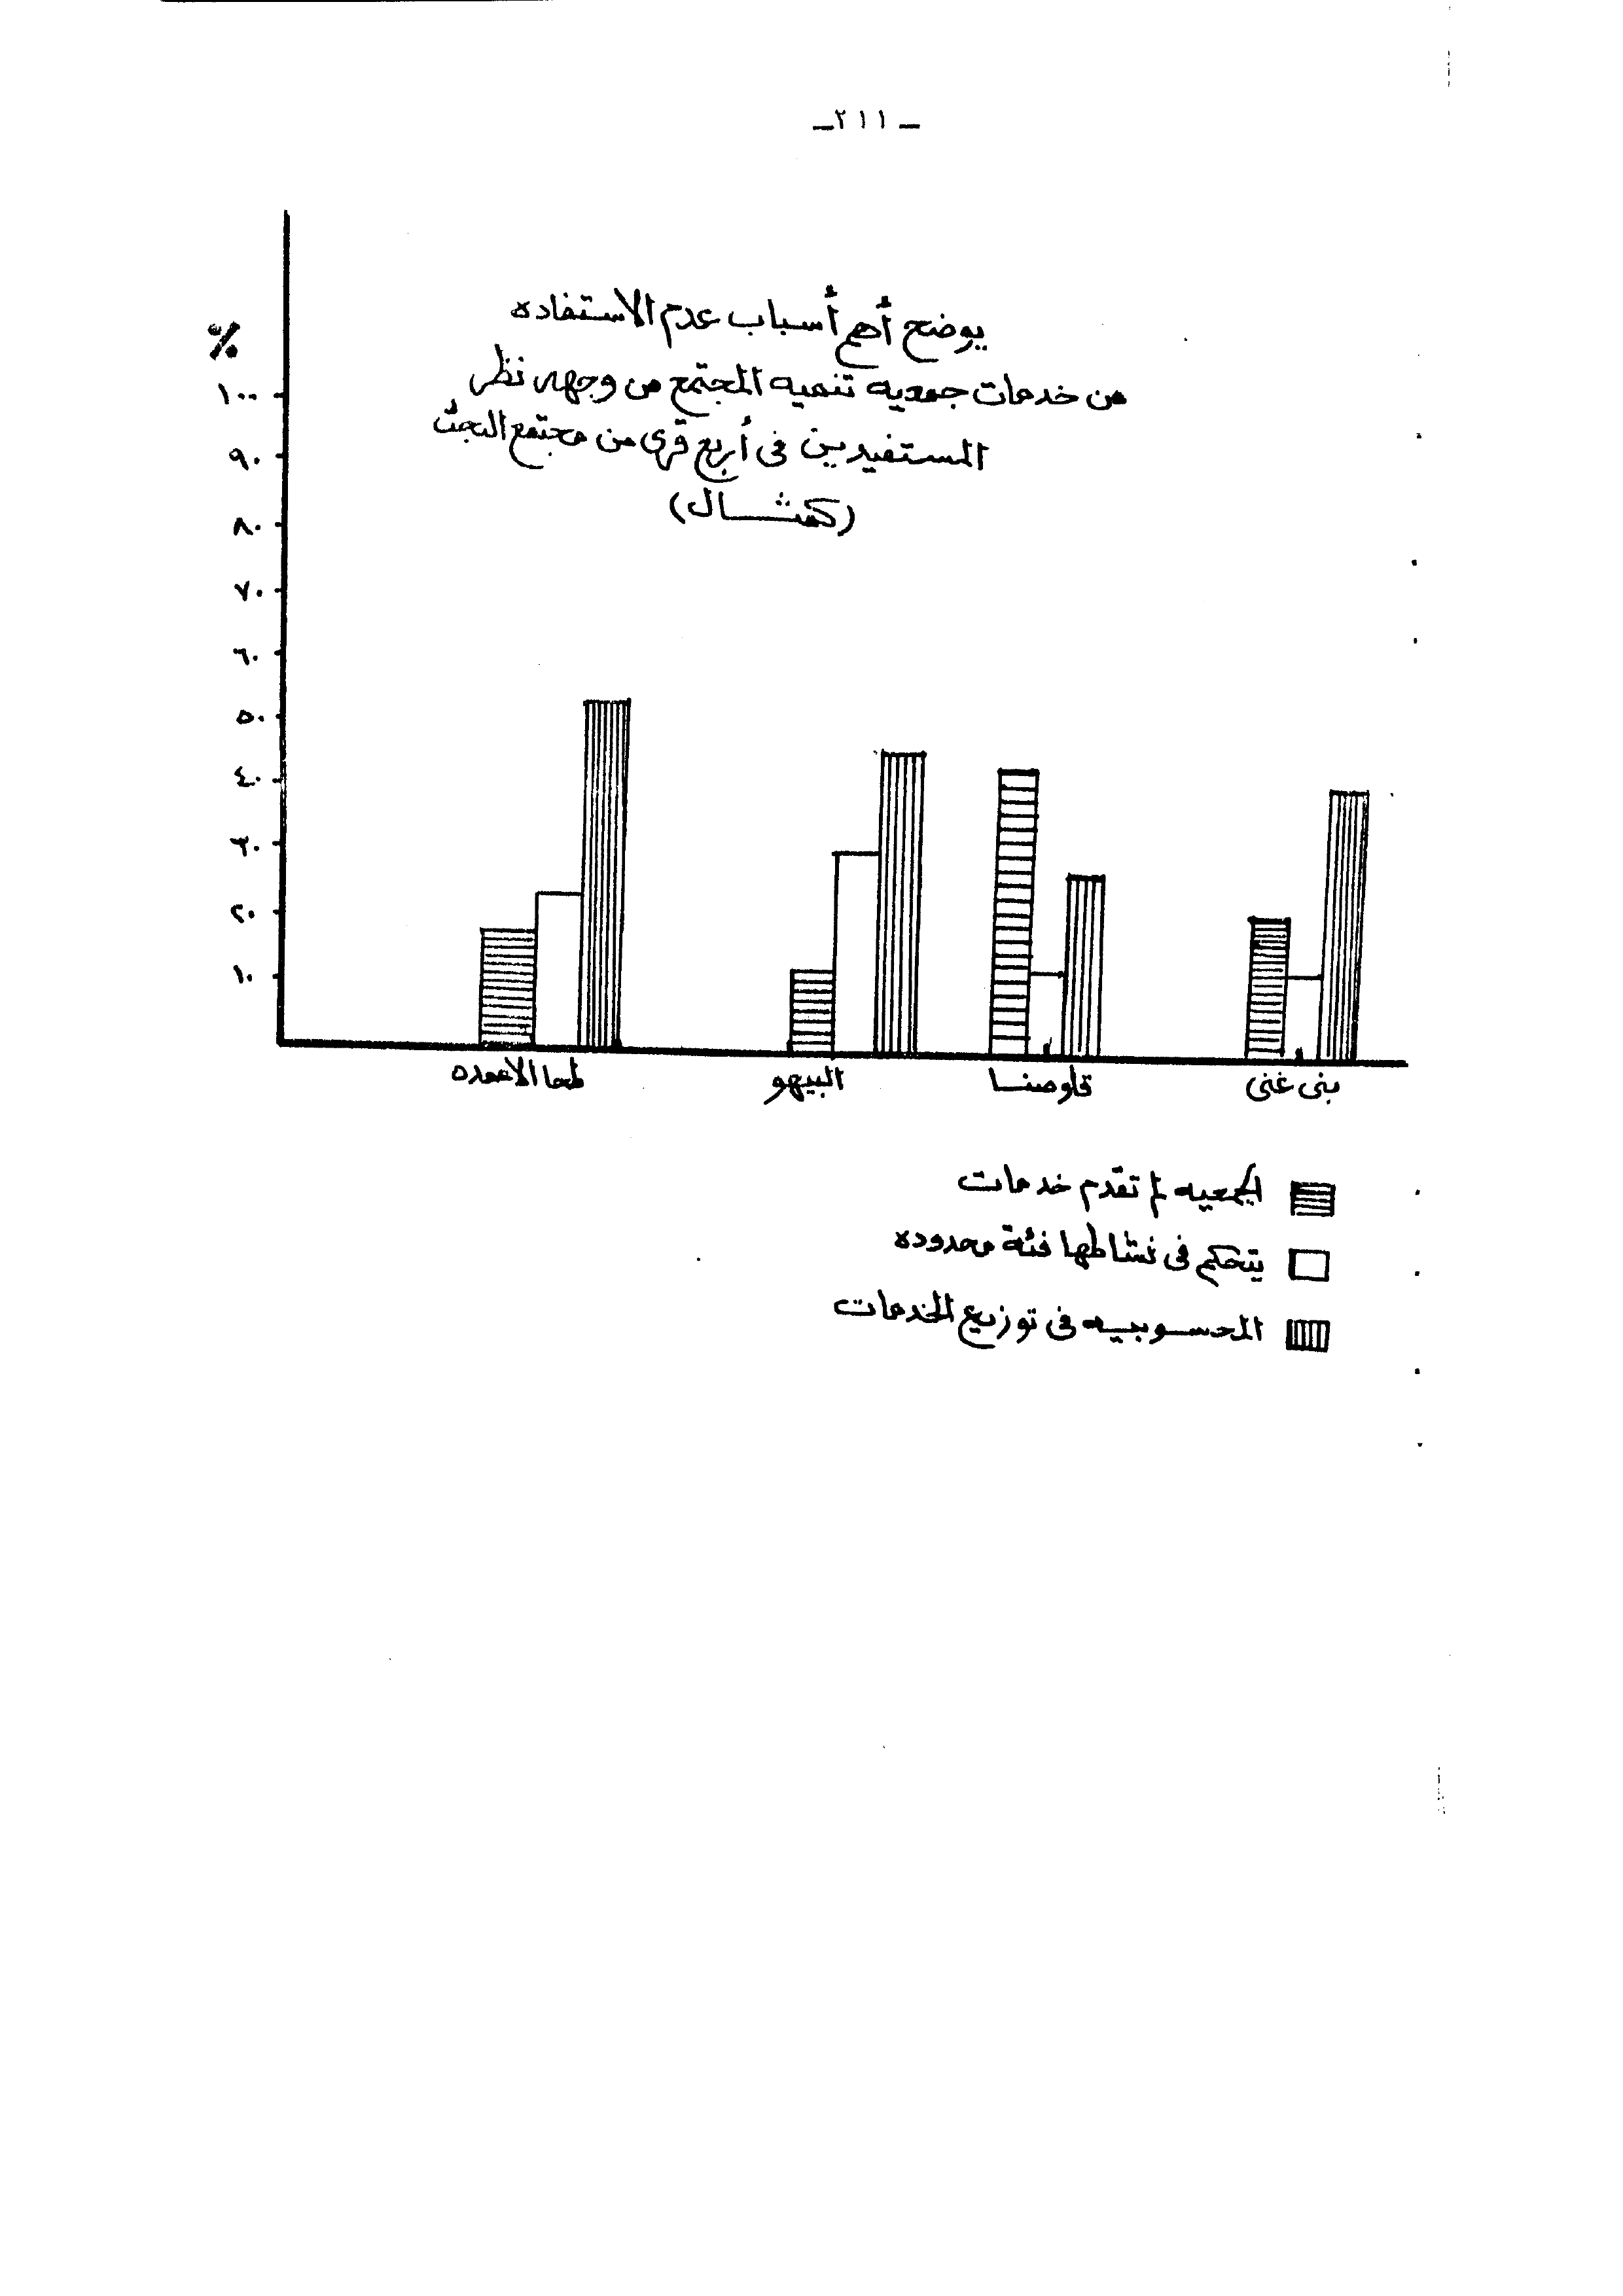 ـ ٢١١ـ
يوضح أهم أسباب عدم الاستفاده
من خدمات جمعيه تنميه المجتمع من وجهه نظر
المستفيدين فى أربع قرى من مجتمع البحث
(كمثـــال)
%
١٠٠
٩٠
٨٠
٧٠
٦٠
٥٠
٤٠
٣٠
٢٠
١٠
طحا الاعمده
البيهو
قلوصنا
بنى غنى
الجمعيه لم تقدم خدمات
يتحكم فى نشاطها فئة محدوده
المحسوبيه فى توزيع الخدمات